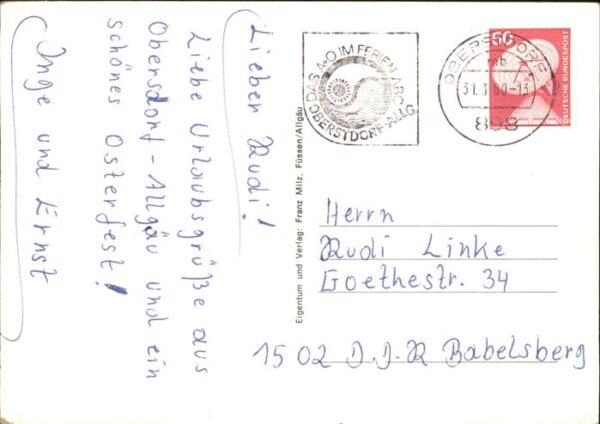 Lieber Rudi!
Liebe Urlaubsgrüße aus
Obersdorf-Allgäu und ein
schönes Osterfest!
Inge und Ernst
Eigentum und Verlag: Franz Milz, Füssen/Allgäu
DAS A+O IM FERIEN-ABC
OBERSTDORF-ALLG.
OBERSTDORF
31.3.80-13
898
50
DEUTSCHE BUNDESPOST
Herrn
Rudi Linke
Goethestr. 34
1502 D.D.R Babelsberg